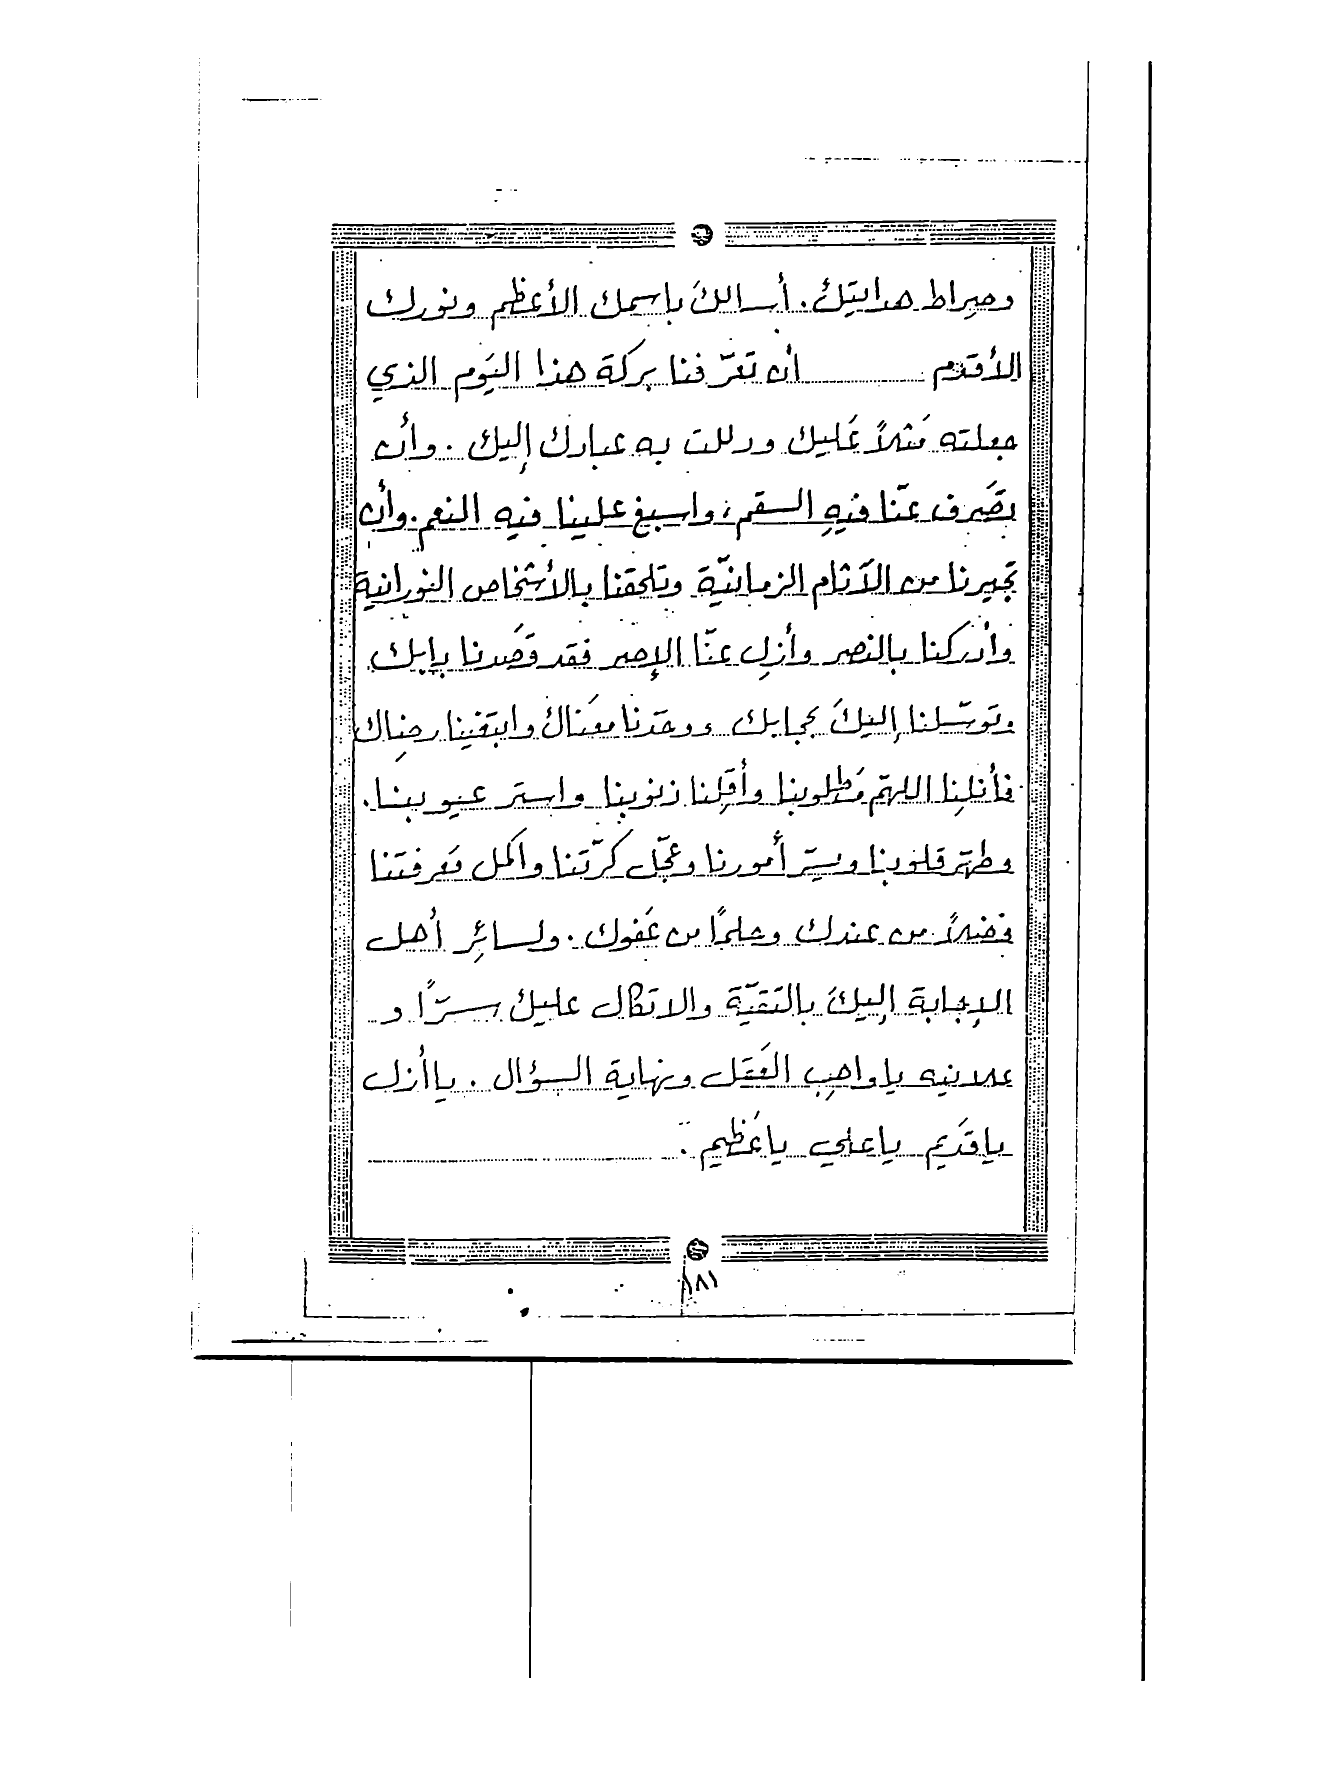 وصِراط هدايتِكُ. أسالكَ باسمك الأعظم ونورك
الأقدم أن تعرّفنا بركة هذا اليَوم الذي
جعلته مَثلاً عَليك ودللت به عبادك إليك. وأن
تصَرف عنّا فيهِ السقم، واسبغ علينا فيه النعم. وأن
تجَيرنا من الآثام الزمانيّة وتلحقنا بالأشخاص النورانية
وأدركنا بالنصر وأزلِ عنّا الإصر فقد قصَدنا بابك
وتوسّلنا إليكَ بحجابك ووحَدنا معَناك وابتغينا رضِاك
فأنلِنا اللهمّ مَطلوبنا وأقلِنا ذنوبنا واستر عيوبنا.
وطهّر قلوبنا ويسّر أمورنا وعجّل كرّتنا واكمل مَعرفتنا
فضلاً من عندك وحلمًا من عَفوك. ولسائِر أهل
الإجابة إليكَ بالتقيّة والاتكال عليك سرًّا و
علانيه يا واهبِ العَقل ونهاية السؤال. يا أزل
يا قدَيم يا علي يا عَظيم.
١٨١